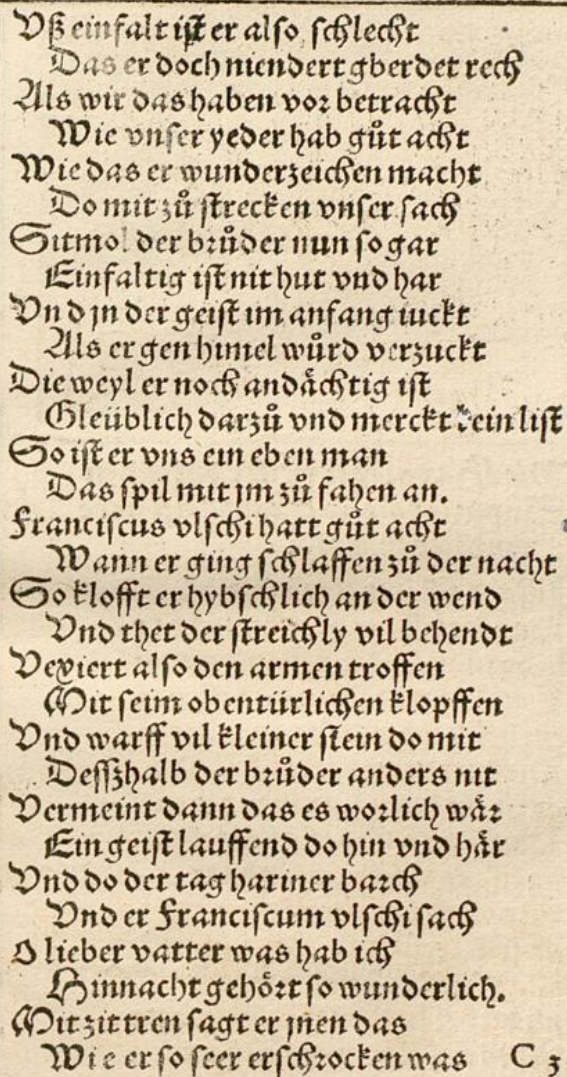 Vß einfalt ist er also schlecht
Das er doch niendert gberdet rech
Als wir das haben vor betracht
Wie vnser yeder hab gůt acht
Wie das er wunderzeichen macht
Do mit zů strecken vnser sach
Sitmol der brůder nun so gar
Einfaltig ist nit hut vnd har
Vnd jn der geist im anfang iuckt
Als er gen himel wůrd verzuckt
Die weyl er noch andächtig ist
Gleüblich darzů vnd merckt kein list
So ist er vns ein eben man
Das spil mit jm zů fahen an.
Franciscus vlschi hatt gůt acht
Wann er ging schlaffen zů der nacht
So klofft er hybschlich an der wend
Vnd thet der streichly vil behendt
Vexiert also den armen troffen
Mit seim obentürlichen klopffen
Vnd warff vil kleiner stein do mit
Dessshalb der brůder anders nit
Vermeint dann das es worlich wär
Ein geist lauffend do hin vnd här
Vnd do der tag hariner barch
Vnd er Franciscum vlschi sach
O lieber vatter was hab ich
Hinnacht gehört so wunderlich.
Mit zittren sagt er jnen das
Wie er so seer erschrocken was C 3